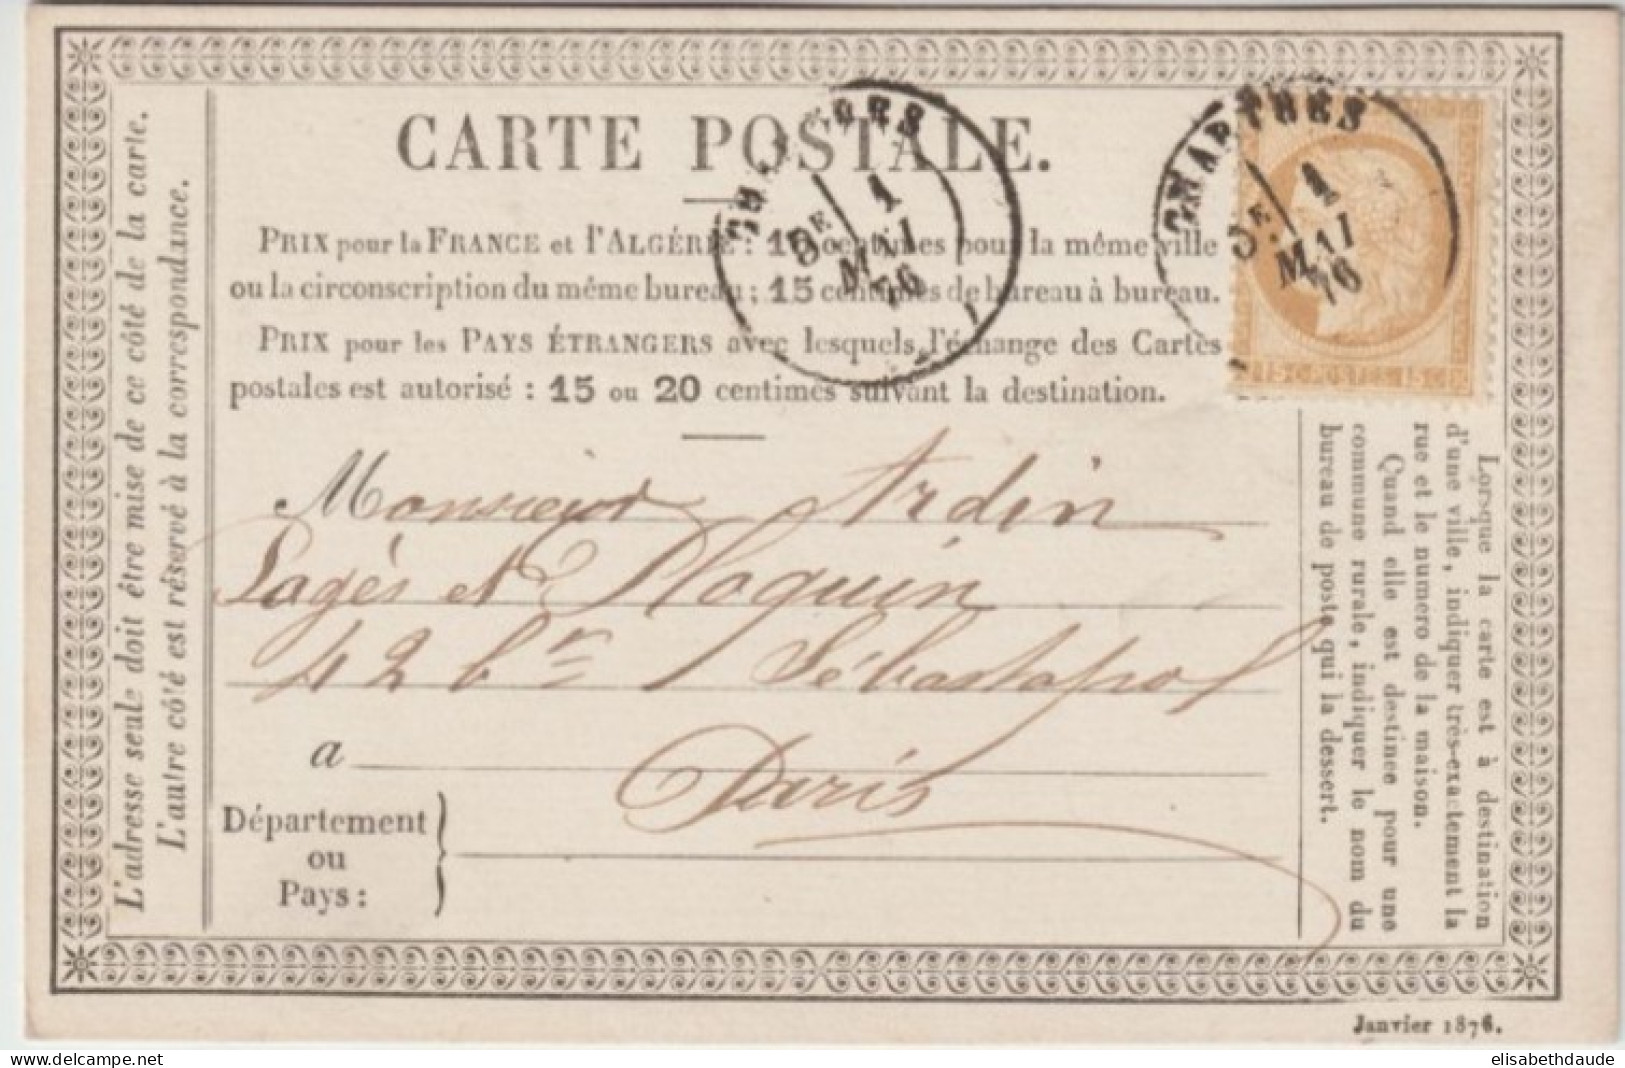 CARTE POSTALE.
CHARTRES
3E
1
MAI
76
CHARTRES
3E
1
MAI
76
PRIX pour la FRANCE et l'ALGÉRIE : 10 centimes pour la même ville
ou la circonscription du même bureau ; 15 centimes de bureau à bureau.
PRIX pour les PAYS ÉTRANGERS avec lesquels l'échange des Cartes
postales est autorisé : 15 ou 20 centimes suivant la destination.
L'adresse seule doit être mise de ce côté de la carte.
L'autre côté est réservé à la correspondance.
Monsieur Ardin
Lagès et Ploquin
42 br Sébastopol
a Paris
Département
ou
Pays :
Lorsque la carte est à destination
d'une ville, indiquer très-exactement la
rue et le numero de la maison.
Quand elle est destinée pour une
commune rurale, indiquer le nom du
bureau de poste qui la dessert.
Janvier 1876.
www.delcampe.net
elisabethdaude